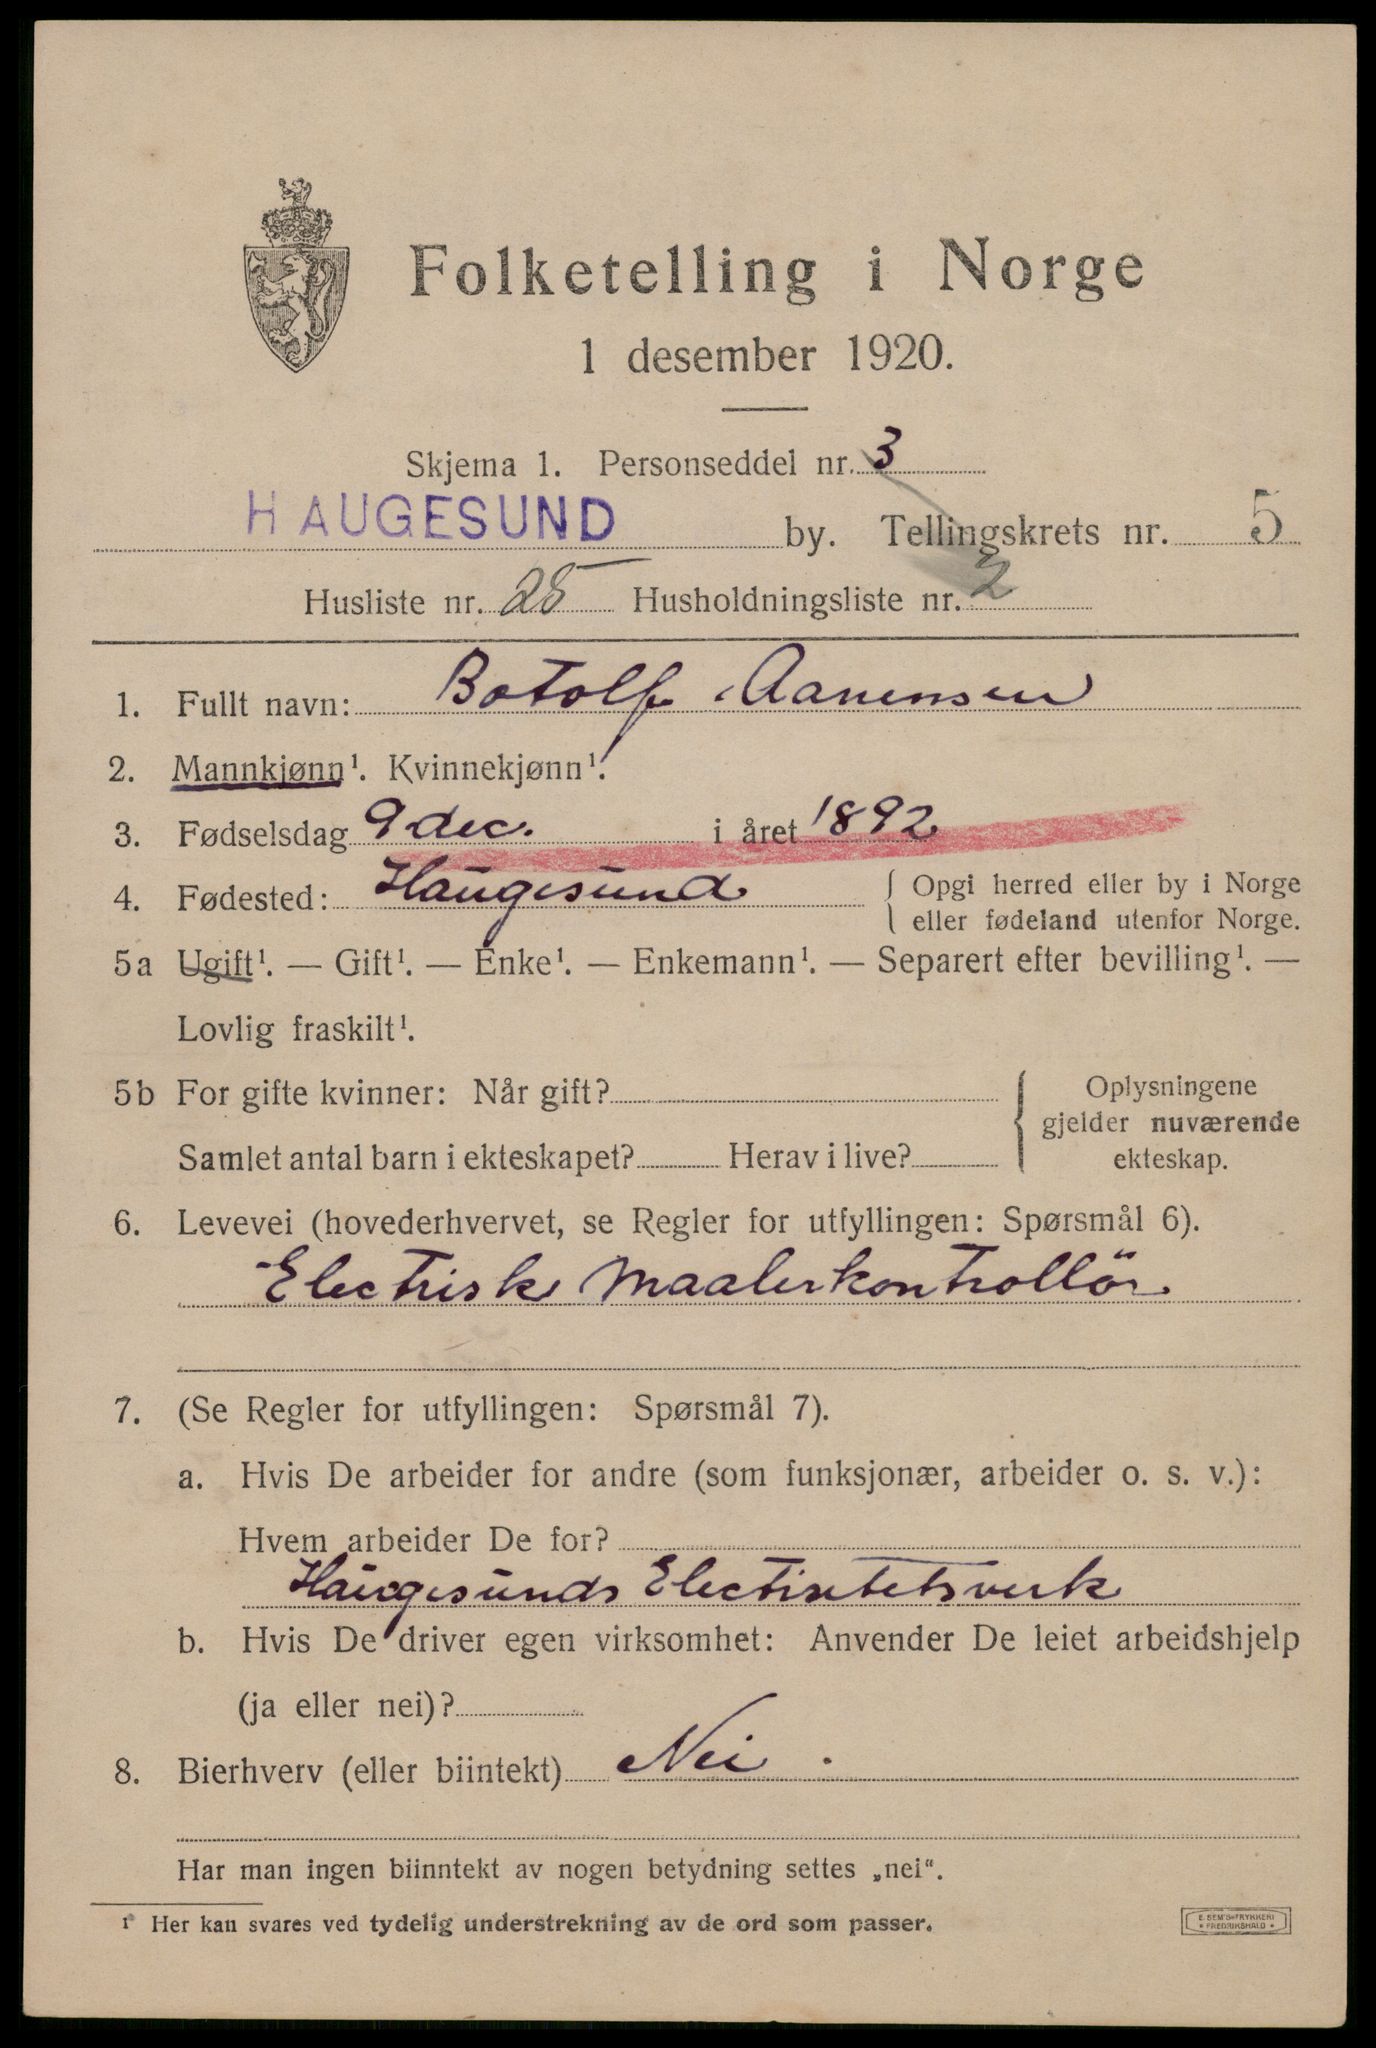 Folketelling i Norge
1 desember 1920.
Skjema 1. Personseddel nr. 3
HAUGESUND by. Tellingskrets nr. 5
Husliste nr. 25 Husholdningsliste nr. 2
1. Fullt navn: Botolf Aanensen
2. Mannkjønn¹. Kvinnekjønn¹.
3. Fødselsdag 9 dec. i året 1892
4. Fødested: Haugesund { Opgi herred eller by i Norge
eller fødeland utenfor Norge.
5a Ugift¹. — Gift¹. — Enke¹. — Enkemann¹. — Separert efter bevilling¹. —
Lovlig fraskilt¹.
5b For gifte kvinner: Når gift? { Oplysningene
gjelder nuværende
Samlet antal barn i ekteskapet? Herav i live? ekteskap.
6. Levevei (hovederhvervet, se Regler for utfyllingen: Spørsmål 6).
Electrisk Maalerkontrollör
7. (Se Regler for utfyllingen: Spørsmål 7).
a. Hvis De arbeider for andre (som funksjonær, arbeider o. s. v.):
Hvem arbeider De for?
Haugesunds Electisetetsverk
b. Hvis De driver egen virksomhet: Anvender De leiet arbeidshjelp
(ja eller nei)?
8. Bierhverv (eller biintekt) Nei.
Har man ingen biinntekt av nogen betydning settes „nei“.
¹ Her kan svares ved tydelig understrekning av de ord som passer.
E. SEM'S TRYKKERI
* FREDRIKSHALD *